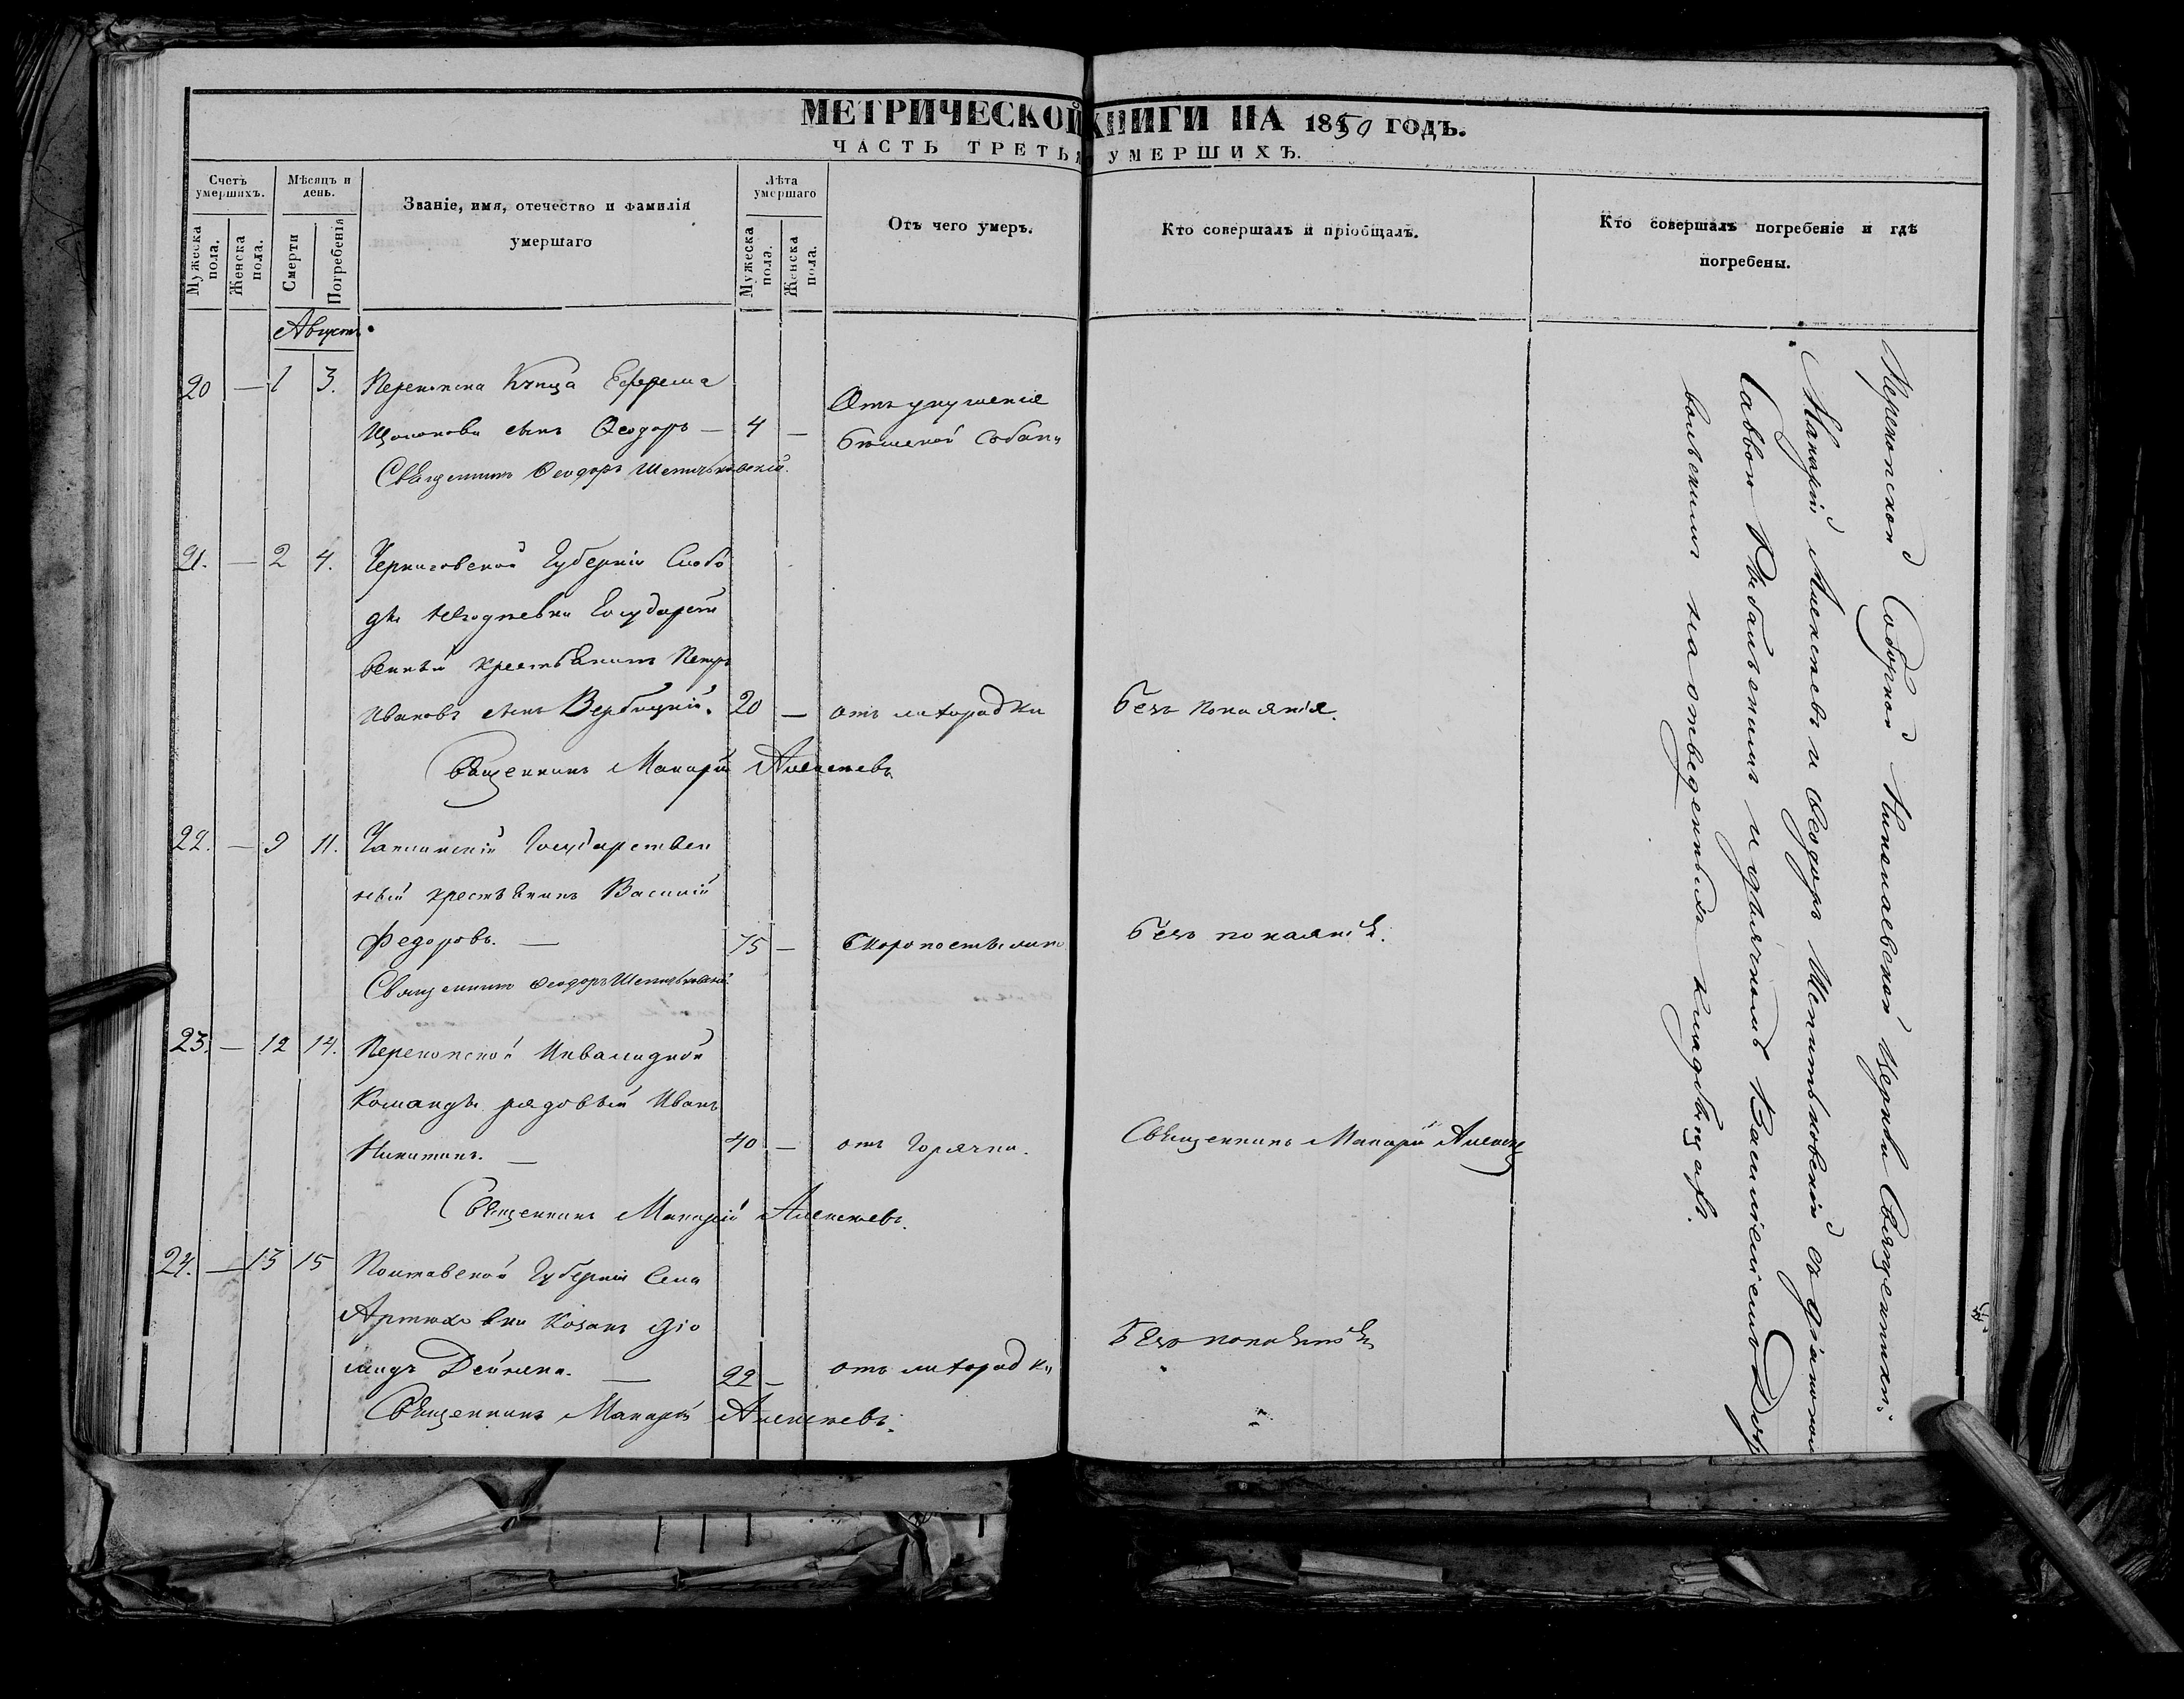 МЕТРИЧЕСКОЙ КНИГИ НА 1850 ГОДЪ.
ЧАСТЬ ТРЕТЬЯ УМЕРШИХЪ.
Счетъ умершихъ.
Мужеска пола.
Женска пола.
Мѣсяцъ и день.
Смерти
Погребенія
Званіе, имя, отечество и фамилія
умершаго
Лѣта умершаго
Мужеска пола.
Женска пола.
Отъ чего умеръ.
Кто совершалъ и пріобщалъ.
Кто совершалъ погребеніе и гдѣ
погребены.
Августъ
20 — 1 3. Перекопска Купца Ефрема
сынъ Ѳеодоръ — 4 —
Отъ укушенія
бѣшеной собаки
Священникъ Ѳеодоръ
21. — 2 4. Черниговской Губерніи Слобо
ды Государст
венный крестьянинъ Петръ
Ивановъ сынъ Вербицкій. 20 — отъ лихорадки Безъ покаянія.
Священникъ Макарій Алексѣевъ
22. — 9 11. Чаплинскій Государствен
ный крестьянинъ Василій
Федоровъ. — 75 — Скоропостижно Безъ покаянія.
Священникъ Ѳеодоръ
23. — 12 14. Перекопской Инвалидной
Команды рядовый Иванъ
Никитинъ. — 40 — отъ Горячки. Священникъ Макарій
Священникъ Макарій Алексѣевъ.
24. — 13 15 Полтавской Губерніи Села
Артюховки Козакъ Діо
мидъ Дейнека. — 22 — отъ лихорадки Безъ покаянія
Священникъ Макарій Алексѣевъ.
Перекопской Соборной Николаевской Церкви Священники:
Макарій Алексѣевъ и Ѳеодоръ съ діакономъ
Саввою и дьячкомъ
на отведенныхъ кладбищахъ.